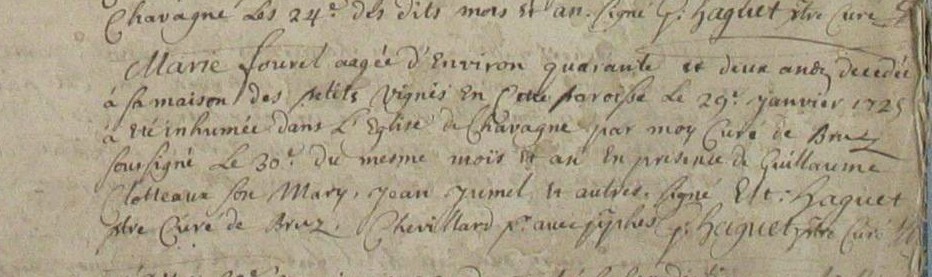 Chavagne Les 24e des dits mois et an. signé p. haguet ptre Curé
Marie fourel aagée d'Environ quarante et deux ans decedée
à sa maison des petits vignes En Cette paroisse Le 29e janvier 1725
à eté inhumée dans L'Eglise de Chavagne par moy Curé de Bruz
soussigné Le 30e du mesme mois et an En presence de Guillaume
Clotteaux son Mary, jean jumel et autres. signé Elt. haguet
ptre Curé de Bruz. Chevillard p. haguet ptre Curé